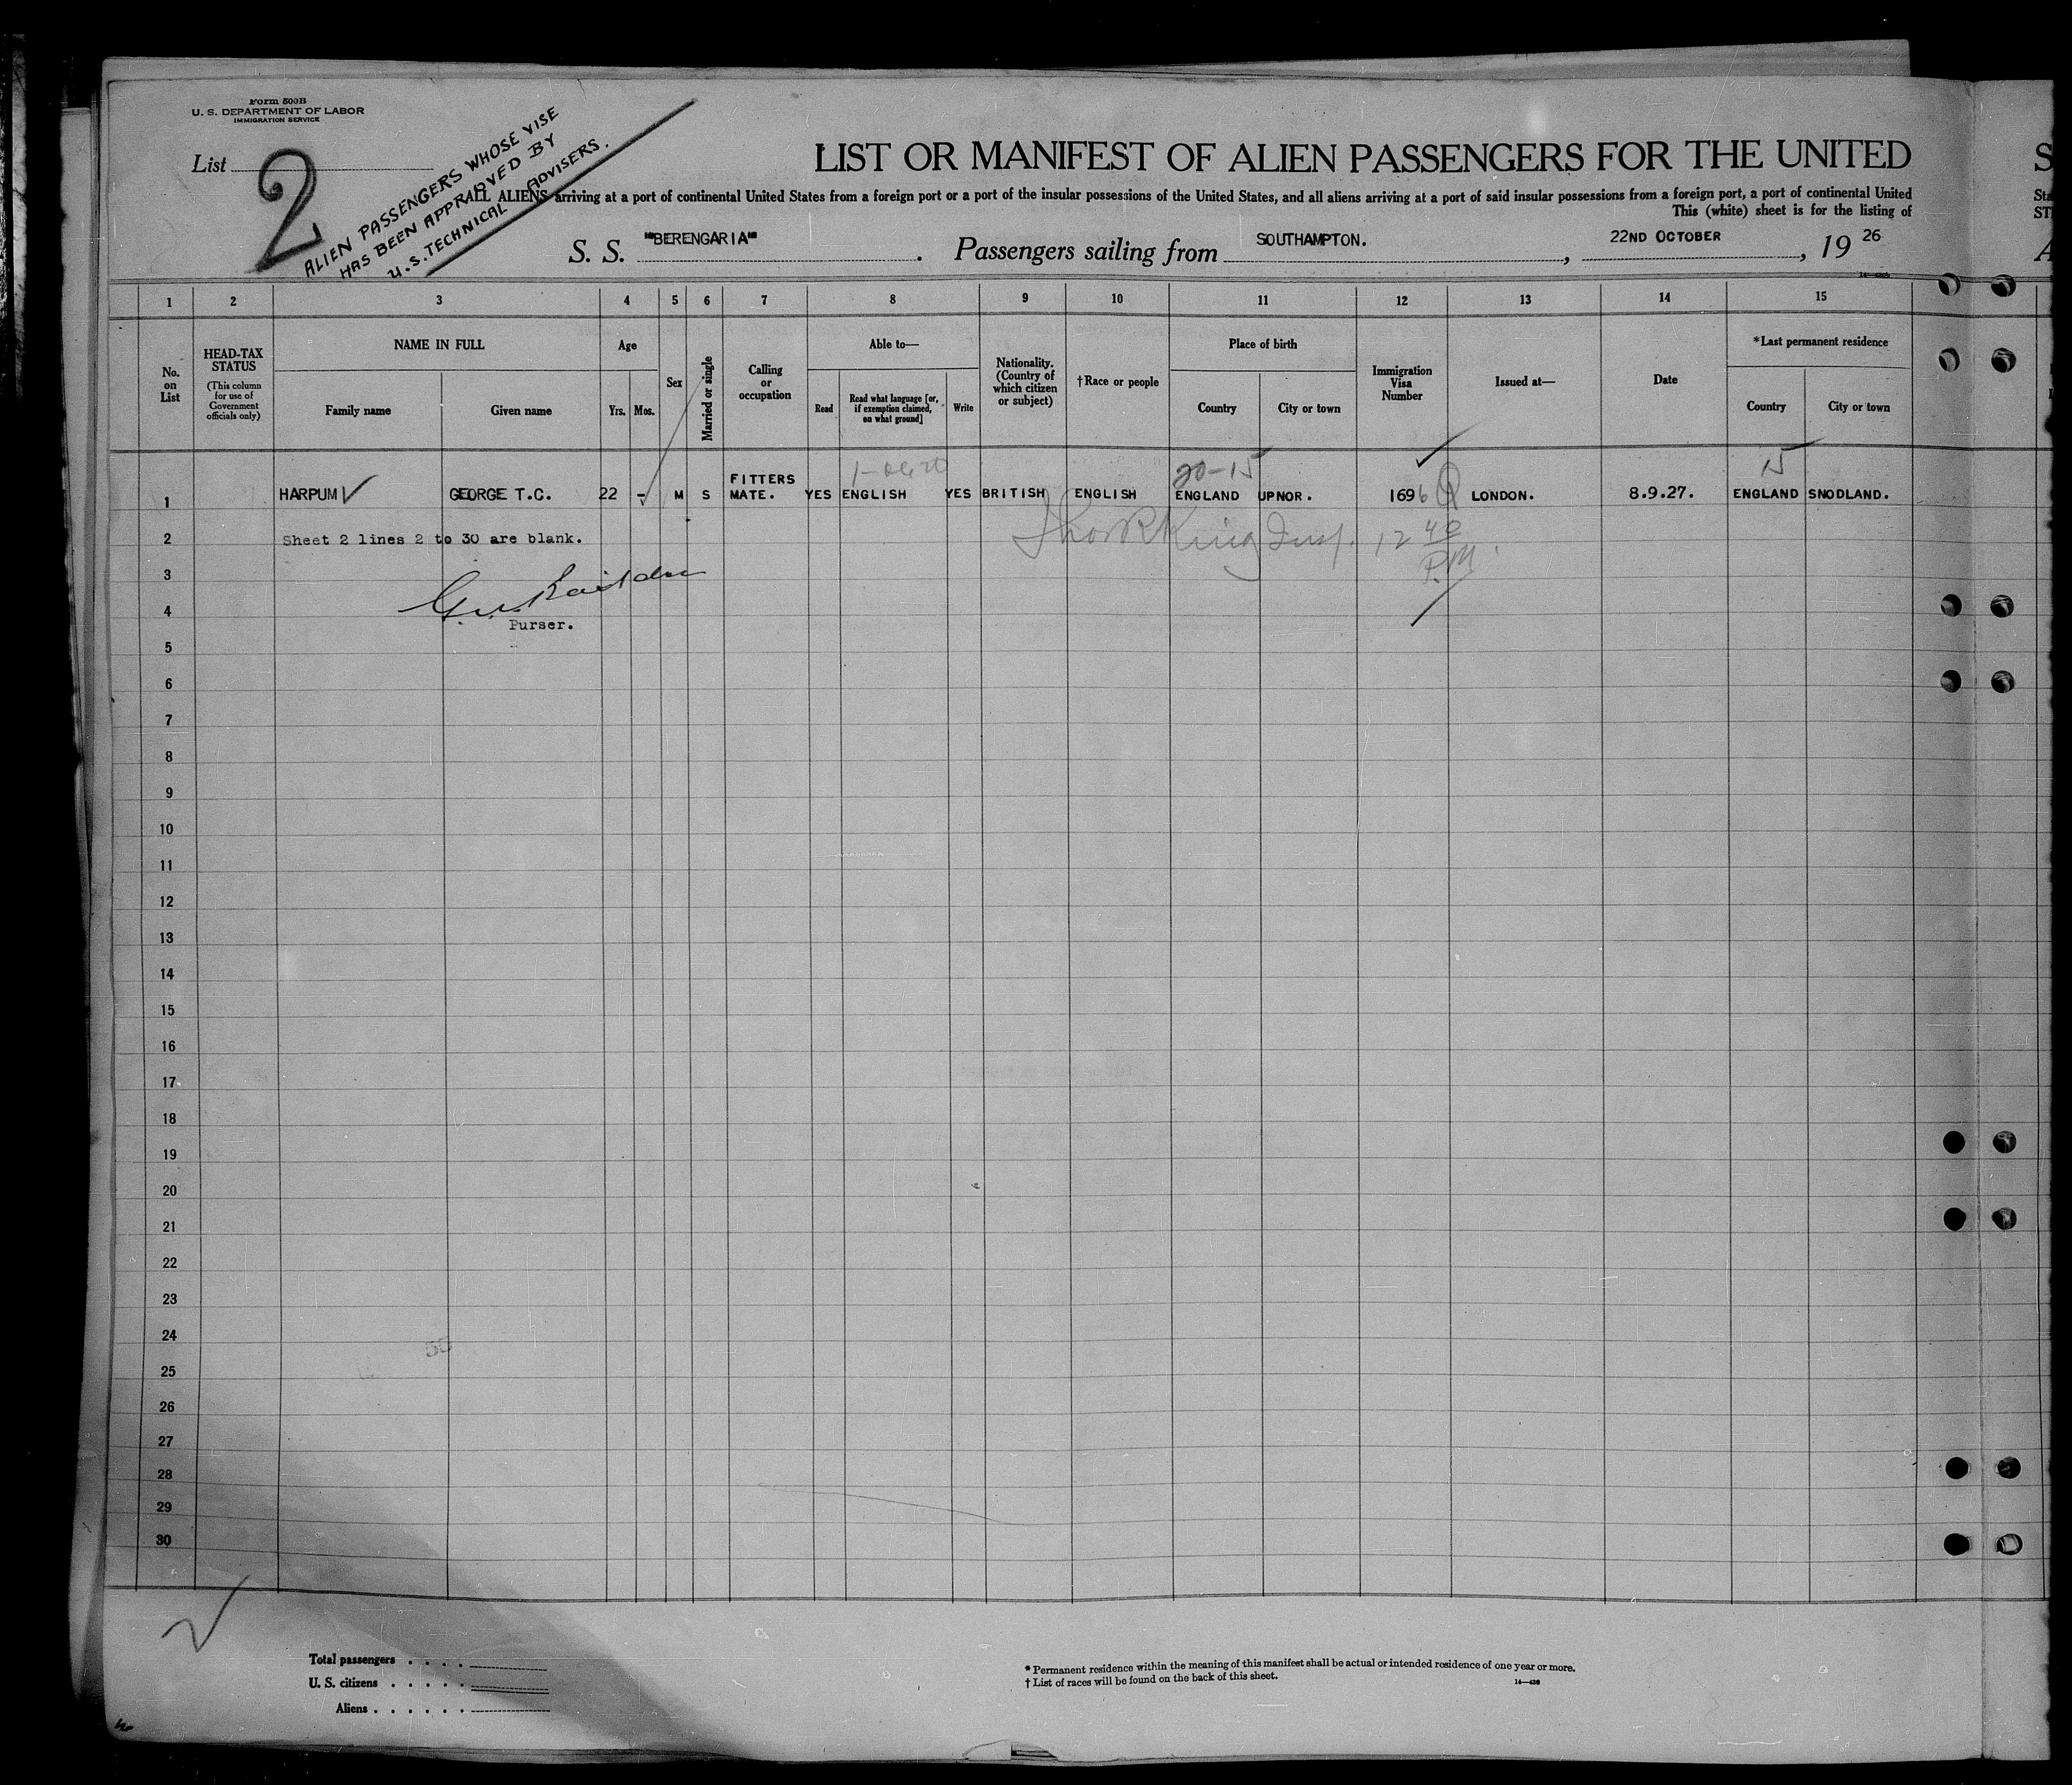 Form 500B
U. S. DEPARTMENT OF LABOR
IMMIGRATION SERVICE
List 2
ALIEN PASSENGERS WHOSE VISE
HAS BEEN APPROVED BY
U.S. TECHNICAL ADVISERS.
LIST OR MANIFEST OF ALIEN PASSENGERS FOR THE UNITED
S
ALL ALIENS arriving at a port of continental United States from a foreign port or a port of the insular possessions of the United States, and all aliens arriving at a port of said insular possessions from a foreign port, a port of continental United
Sta
This (white) sheet is for the listing of
ST
S. S. "BERENGARIA". Passengers sailing from SOUTHAMPTON. , 22ND OCTOBER , 19 26
A
1 2 3 4 5 6 7 8 9 10 11 12 13 14 15
No. on List
HEAD-TAX STATUS (This column for use of Government officials only)
NAME IN FULL
Family name Given name
Age
Yrs. Mos.
Sex
Married or single
Calling or occupation
Able to—
Read
Read what language [or, if exemption claimed, on what ground]
Write
Nationality. (Country of which citizen or subject)
†Race or people
Place of birth
Country City or town
Immigration Visa Number
Issued at—
Date
*Last permanent residence
Country City or town
20-15 15
1 HARPUM GEORGE T.C. 22 - M S FITTERS MATE. YES ENGLISH YES BRITISH ENGLISH ENGLAND UPNOR. 1696 LONDON. 8.9.27. ENGLAND SNODLAND.
2 Sheet 2 lines 2 to 30 are blank. King Insp. 12 40 P.M.
3
4
Purser.
5
6
7
8
9
10
11
12
13
14
15
16
17
18
19
20
21
22
23
24
25
26
27
28
29
30
Total passengers
U. S. citizens
Aliens
* Permanent residence within the meaning of this manifest shall be actual or intended residence of one year or more.
† List of races will be found on the back of this sheet.